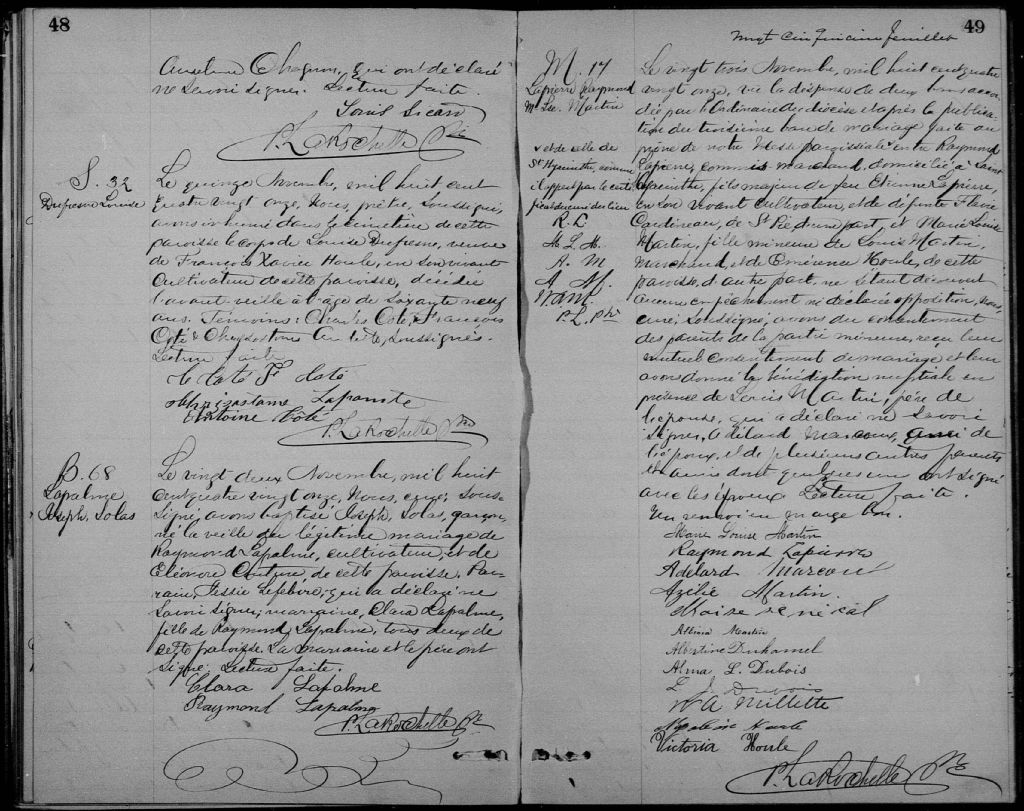 48
Anselme Chagnon, qui ont déclaré
ne savoir signer. Lecture faite.
Louis Sicard
P. LaRochelle Ptre
S. 32
Dufresne Louise
Le quinze Novembre, mil huit cent
quatre vingt onze, Nous, prêtre, soussigné,
avons inhumé dans le cimetière de cette
paroisse le corps de Louise Dufresne, veuve
de François Xavier Houle, en son vivant
Cultivateur de cette paroisse, décédée
l'avant-veille à l'âge de soixante neuf
ans. Témoins: Charles Coté, François
Coté & Chrysostome soussignés.
Lecture faite
C Coté F Coté
Antoine Coté
P. LaRochelle Ptre
B. 68
Lapalme
Joseph, Solas
Le vingt deux Novembre, mil huit
cent quatre vingt onze, Nous, curé, sous-
signé, avons baptisé Joseph, Solas, garçon,
né la veille du légitime mariage de
Raymond Lapalme, cultivateur, et de
Eléonore Couture de cette paroisse. Par-
rain, Jessie Lefebvre, qui a déclaré ne
savoir signer; marraine, Clara Lapalme,
fille de Raymond Lapalme, tous deux de
cette paroisse. La marraine et le père ont
signé. Lecture faite.
Clara Lapalme
Raymond Lapalme
P. LaRochelle Ptre
49
vingt cinquième feuillet
M. 17
Lapierre Raymond
Me Lse. Martin
v et de celle de
St Hyacinthe, comme
il appert par le certi-
ficat du curé du lieu
R. L.
M L M.
A. M
A M.
W. A M.
P. L. Ptre
Le vingt trois Novembre, mil huit cent quatre
vingt onze, vu la dispense de deux bans accor-
dée par l'Ordinaire du diocèse et après la publica-
tion du troisième ban de mariage faite au
prône de notre Messe paroissiale v entre Raymond
Lapierre, commis marchand, domicilié à Saint
Hyacinthe, fils majeur de feu Etienne Lapierre,
en son vivant cultivateur, et de défunte Flavie
de St Pie d'une part, et Marie Louise
Martin, fille mineure de Louis Martin,
Marchand, et de Emérence Houle, de cette
paroisse, d'autre part, ne s'étant découvert
aucun empêchement ni déclaré opposition, nous,
curé, soussigné, avons du consentement
des parents de la partie mineure, reçu leur
mutuel consentement de mariage et leur
avons donné la bénédiction nuptiale en
présence de Louis Martin, père de
l'épouse, qui a déclaré ne savoir
signer, & Adélard Marcoux, ami de
l'époux, et de plusieurs autres parents
et amis dont quelques uns ont signé
avec les époux. Lecture faite.
Un renvoi en marge bon.
Marie Louise Martin
Raymond Lapierre
Adelard Marcoux
Azilie Martin.
Eloise Senécal
Albina Martin
Albertine Duhamel
Alma L. Dubois
Dubois
W A Millette
Houle
Victoria Houle
P. LaRochelle Ptre